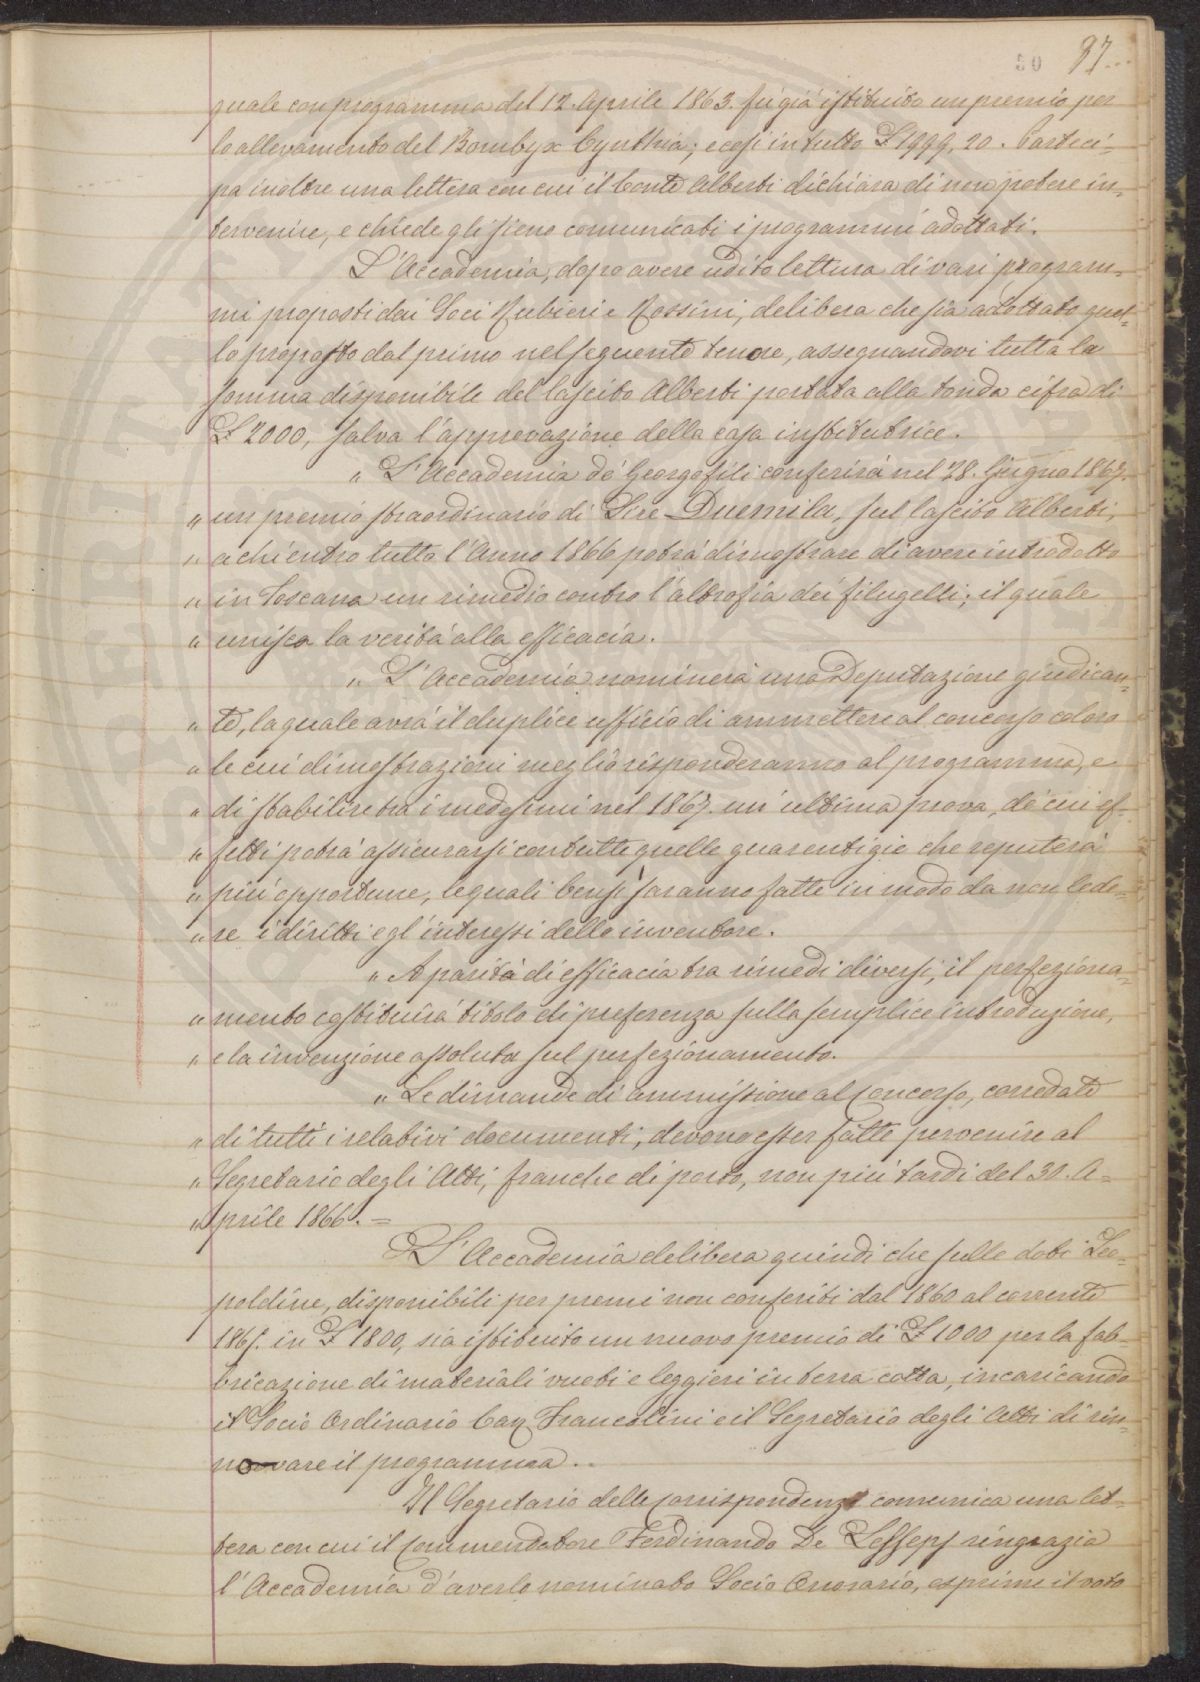 50 97.
quale con programma del 12 Aprile 1863. fu già istituito un premio per
lo allevamento del Bombyx Cynthia; e così in tutto £ 1999, 20. Parteci-
pa inoltre una lettera con cui il Conte Alberti dichiara di non potere in-
tervenire, e chiede gli sieno comunicati i programmi adottati.
L'Accademia, dopo avere udito lettura di vari program-
mi proposti dai Soci Rubieri e Rossini, delibera che sia adottato quel-
lo proposto dal primo nel seguente tenore, assegnandovi tutta la
somma disponibile del lascito Alberti portata alla tonda cifra di
£ 2000, salva l'approvazione della casa institutrice.
„ L'Accademia de' Georgofili conferirà nel 28. Giugno 1867.
„ un premio straordinario di Lire Duemila, sul lascito Alberti,
„ a chi entro tutto l'Anno 1866 potrà dimostrare di avere introdotto
„ in Toscana un rimedio contro l'altrofia dei filugelli; il quale
„ unisca la verità alla efficacia.
„ L'Accademia nominerà una Deputazione giudican-
„ te, la quale avrà il duplice ufficio di ammettere al concorso coloro
„ le cui dimostrazioni meglio risponderanno al programma, e
„ di stabilire tra i medesimi nel 1867. un'ultima prova, de' cui ef-
„ fetti potrà assicurarsi con tutte quelle guarentigie che reputerà
„ più opportune, le quali bensì saranno fatte in modo da non lede-
„ re i diritti e gl'interessi dello inventore.
„ A parità di efficacia tra rimedi diversi, il perfeziona-
„ mento costituirà titolo di preferenza sulla semplice introduzione,
„ e la invenzione assoluta sul perfezionamento.
„ Le dimande di ammissione al Concorso, corredate
„ di tutti i relativi documenti, devono esser fatte pervenire al
„ Segretario degli Atti, franche di porto, non più tardi del 30. A-
„ prile 1866. =
L'Accademia delibera quindi che sulle doti Leo-
poldine, disponibili per premi non conferiti dal 1860 al corrente
1865. in £ 1800, sia istituito un nuovo premio di £ 1000 per la fab-
bricazione di materiali vuoti e leggieri in terra cotta, incaricando
il Socio Ordinario Cav. Francolini e il Segretario degli Atti di rin-
novare il programma.
Il Segretario delle Corrispondenze comunica una let-
tera con cui il Commendatore Ferdinando De Lesseps ringrazia
l'Accademia d'averlo nominato Socio Onorario, esprime il voto